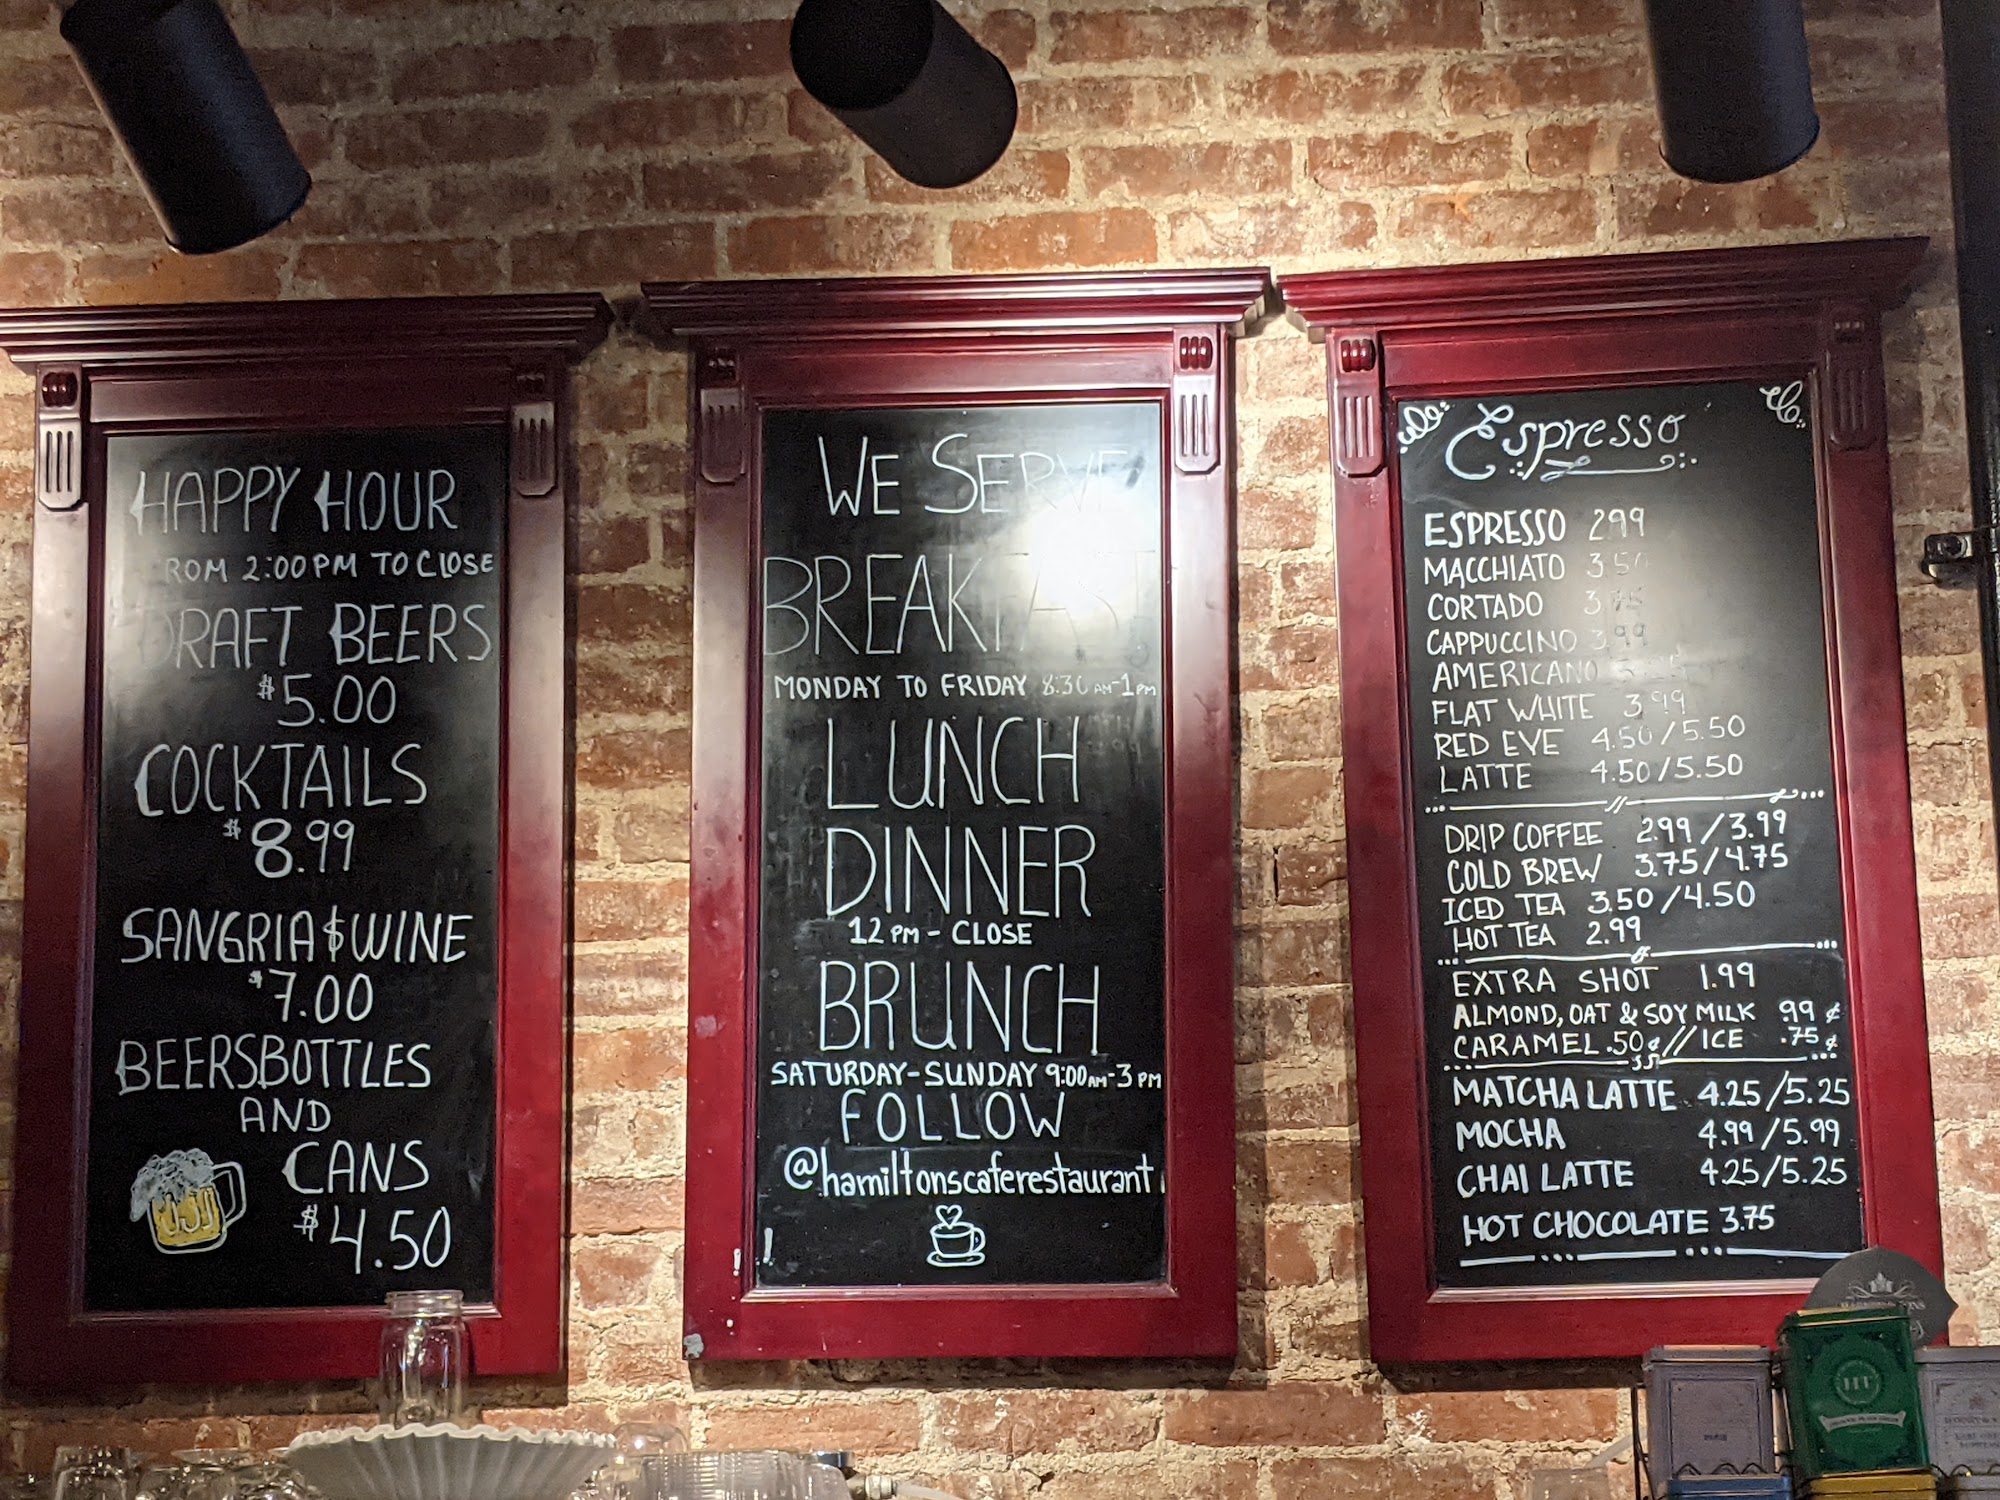 HAPPY HOUR
ROM 2:00PM TO CLOSE
DRAFT BEERS
$5.00
COCKTAILS
$8.99
SANGRIA $ WINE
$7.00
BEERSBOTTLES
AND
CANS
$4.50
WE SERVE
BREAKFAST
MONDAY TO FRIDAY 8:30 AM-1PM
LUNCH
DINNER
12 PM - CLOSE
BRUNCH
SATURDAY-SUNDAY 9:00AM-3 PM
FOLLOW
@hamiltonscaferestaurant
Espresso
ESPRESSO 2.99
MACCHIATO 3.50
CORTADO 3.75
CAPPUCCINO 3.99
AMERICANO
FLAT WHITE 3.99
RED EYE 4.50/5.50
LATTE 4.50/5.50
DRIP COFFEE 2.99/3.99
COLD BREW 3.75/4.75
ICED TEA 3.50/4.50
HOT TEA 2.99
EXTRA SHOT 1.99
ALMOND, OAT & SOY MILK 99 ¢
CARAMEL .50¢//ICE .75¢
MATCHA LATTE 4.25/5.25
MOCHA 4.99/5.99
CHAI LATTE 4.25/5.25
HOT CHOCOLATE 3.75
HT